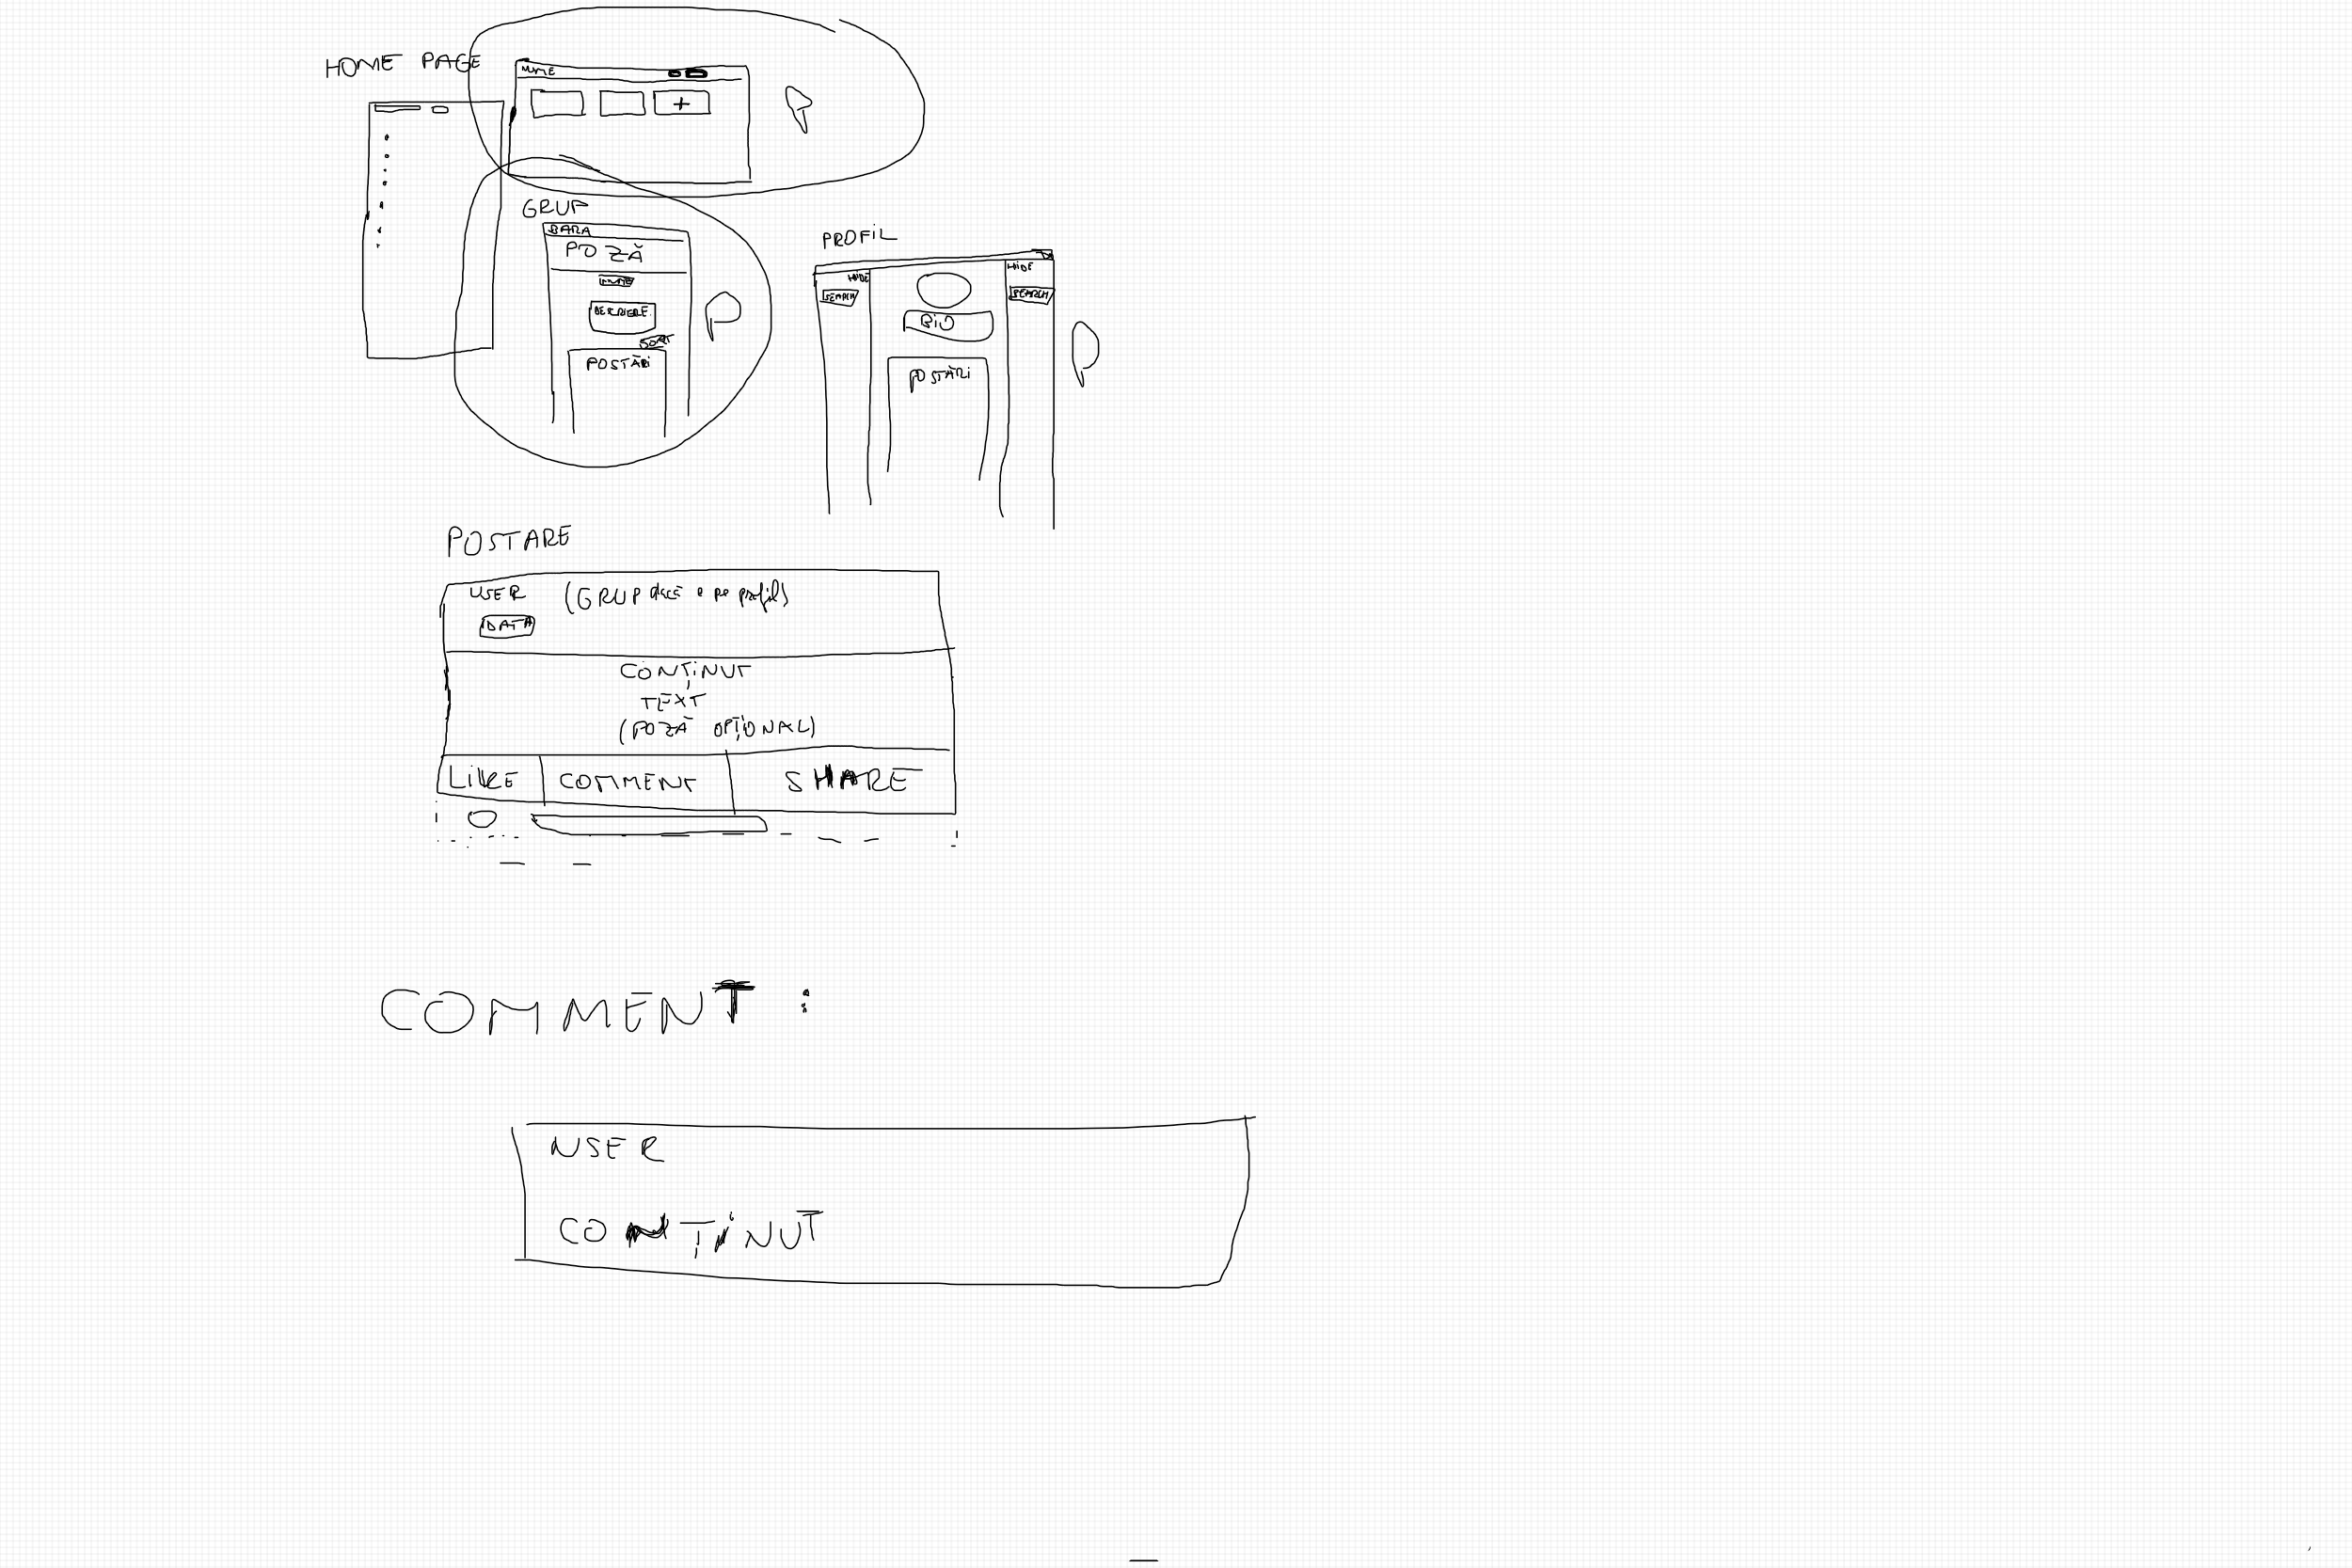 HOME PAGE
NUME
+
GRUP
BARA
POZĂ
NUME
DESCRIERE
SORT
POSTĂRI
PROFIL
HIDE
HIDE
SEARCH
SEARCH
BIO
POSTĂRI
POSTARE
USER (GRUP dacă e pe profil)
DATA
CONȚINUT
TEXT
(POZĂ OPȚIONAL)
LIKE COMMENT SHARE
COMMENT :
USER
CONȚINUT